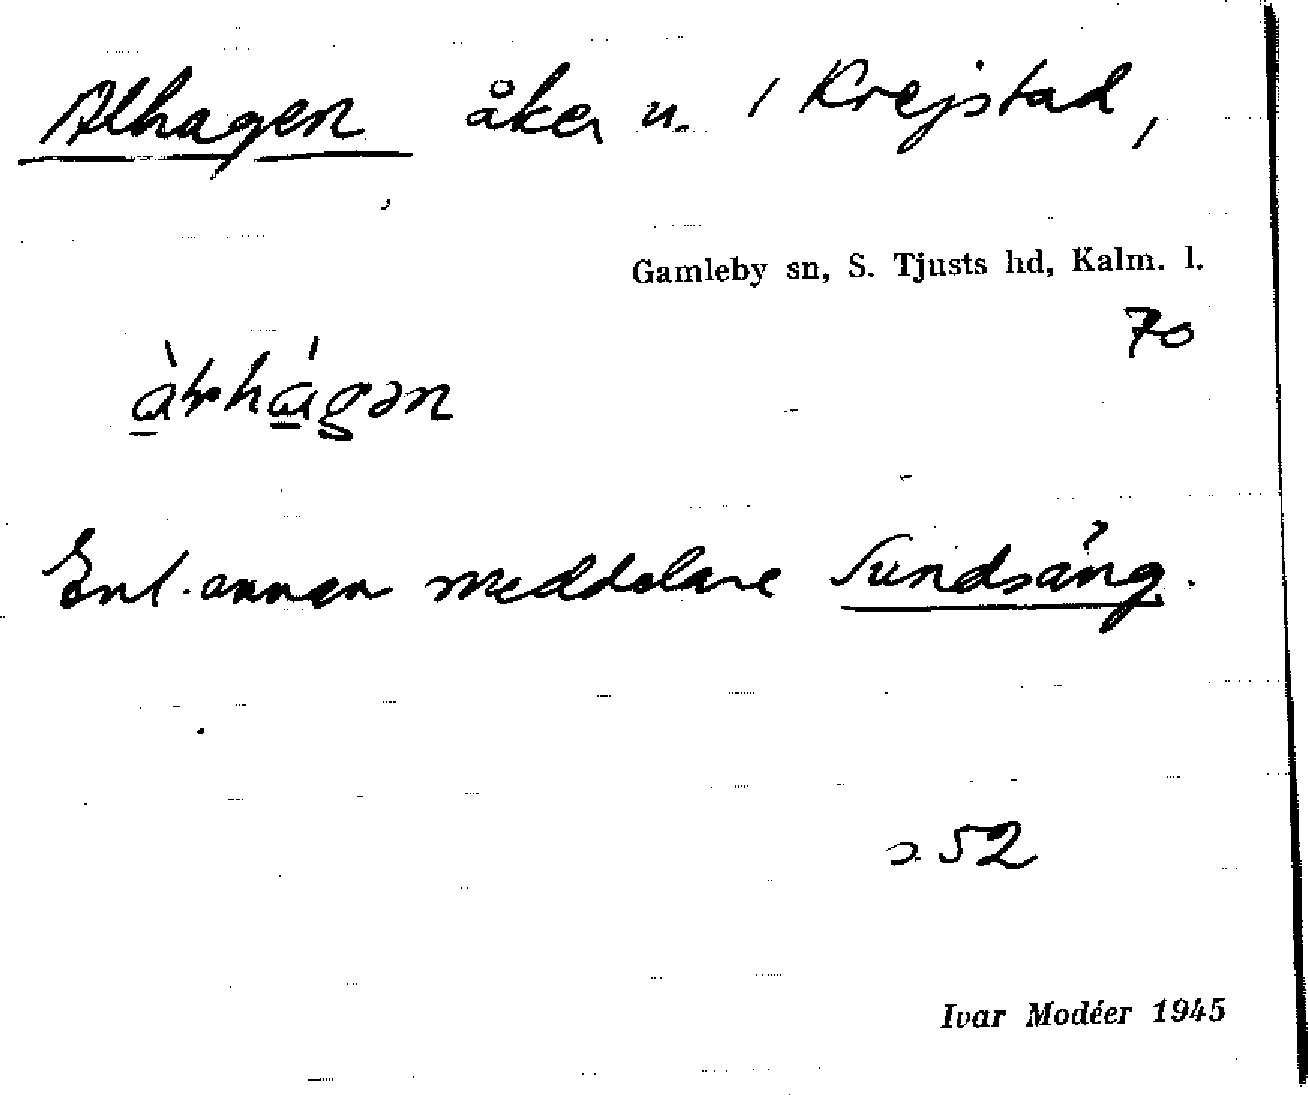 Alhagen åker u. 1 Krejstad,
Gamleby sn, S. Tjusts hd, Kalm. l.
70
Enl. annan meddelare Sundsäng.
s. 52
Ivar Modéer 1945